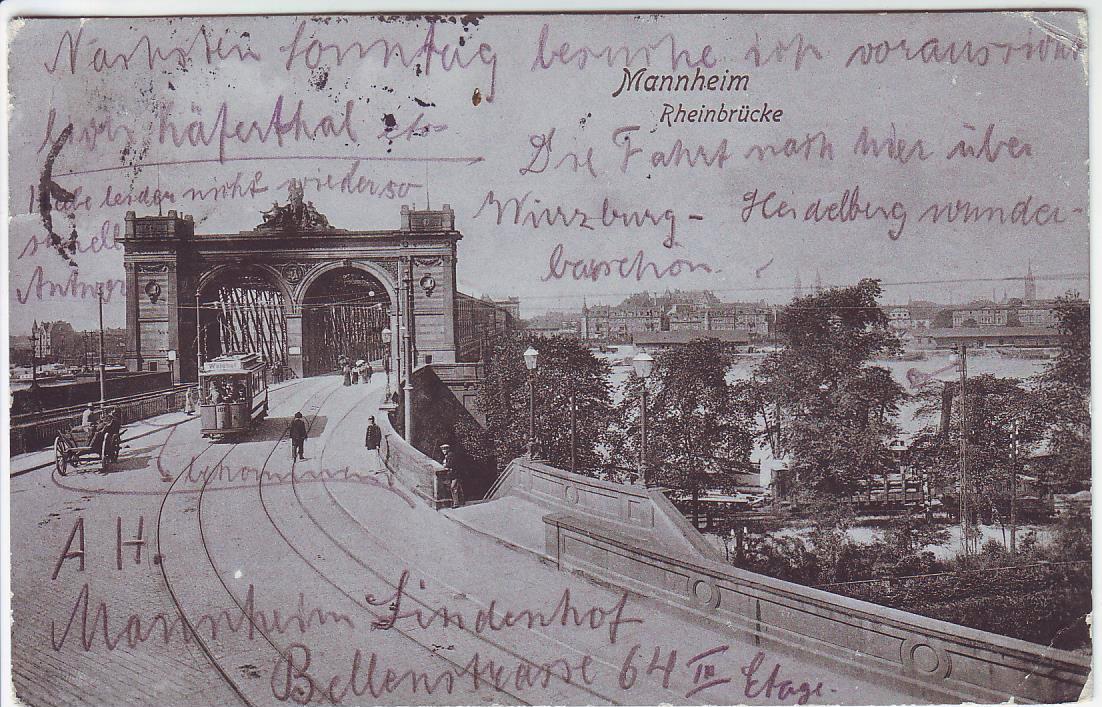 Nächsten Sonntag besuche ich voraussicht
Käferthal etc
Mannheim
Rheinbrücke
Die Fahrt nach hier über
Würzburg - Heidelberg wunder-
barschön.
Habe leider nicht wieder so
schnell
Antwort
bekommen
Waldhof
A H.
Mannheim Lindenhof
Bellenstrasse 64 III Etage.